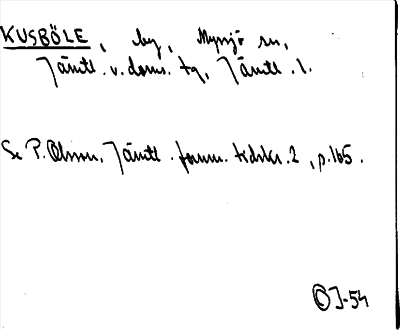 KUSBÖLE, by, Myssjö sn,
Jämtl. v. doms. tg, Jämtl. l.
Se P. Olsson, Jämtl. fornm. tidskr. 2, p. 165.
OJ-54